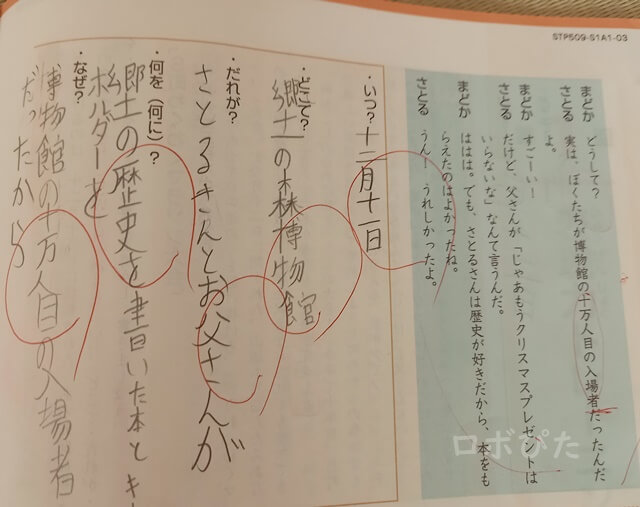 STP509-S1A1-03
まどか どうして?
さとる 実は、ぼくたちが博物館の十万人目の入場者だったんだ
よ。
まどか すごーい!
さとる だけど、父さんが「じゃあもうクリスマスプレゼントは
いらないな」なんて言うんだ。
まどか ははは。でも、さとるさんは歴史が好きだから、本をも
らえたのはよかったね。
さとる うん!うれしかったよ。
・いつ?十二月十二日
・どこで?
郷土の森博物館
・だれが?
さとるさんとお父さんが
・何を(何に)?
郷土の歴史を書いた本とキ
ホルダーを
・なぜ?
博物館の十万人目の入場者
だったから
ロボぴた